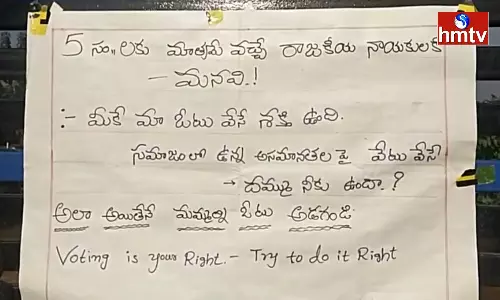 hmtv
5 సం,, లకు మాత్రమే వచ్చే రాజకీయ నాయకులకి
- మనవి.!
:- మీకే మా ఓటు వేసే శక్తి ఉంది.
సమాజంలో ఉన్న అసమానతల పై వేటు వేసే
→ దమ్ము నీకు ఉందా.?
అలా అయితేనే మమ్మల్ని ఓటు అడగండి
Voting is your Right. - Try to do it Right